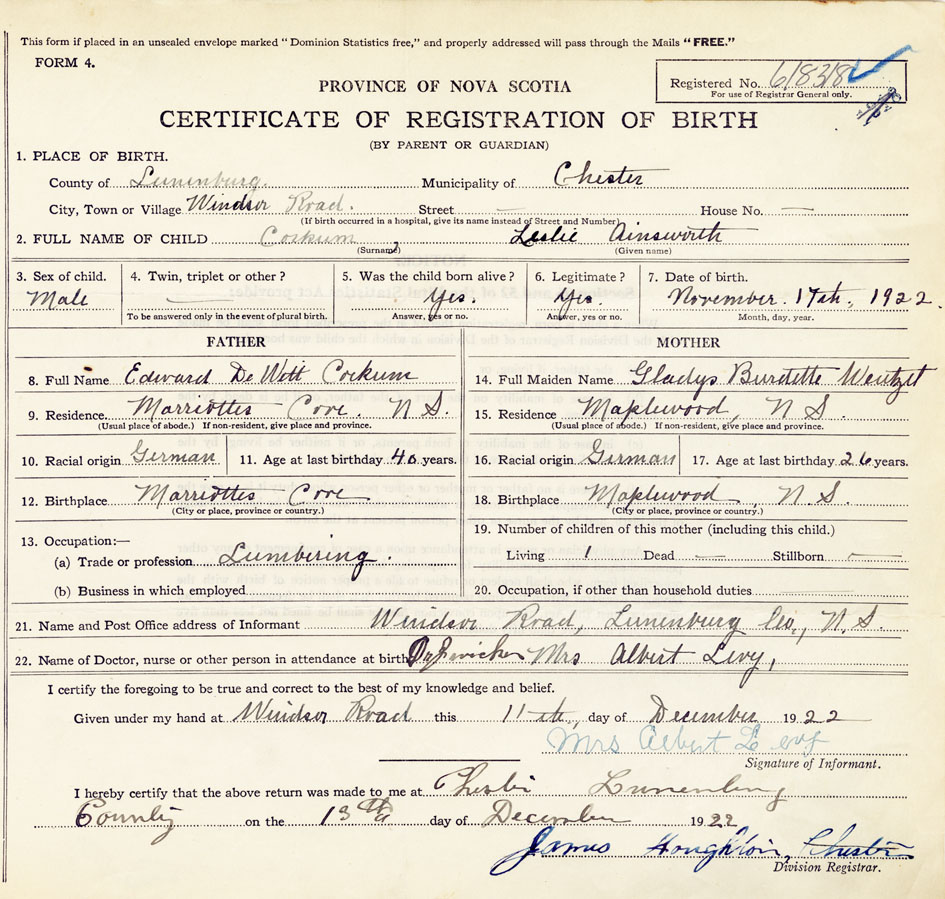 This form if placed in an unsealed envelope marked "Dominion Statistics free," and properly addressed will pass through the Mails "FREE."
FORM 4.
PROVINCE OF NOVA SCOTIA
Registered No. 61838
For use of Registrar General only.
CERTIFICATE OF REGISTRATION OF BIRTH
(BY PARENT OR GUARDIAN)
1. PLACE OF BIRTH.
County of Lunenburg. Municipality of Chester
City, Town or Village Windsor Road. Street — House No. —
(If birth occurred in a hospital, give its name instead of Street and Number)
2. FULL NAME OF CHILD Corkum, Leslie Ainsworth
(Surname) (Given name)
3. Sex of child. 4. Twin, triplet or other? 5. Was the child born alive? 6. Legitimate? 7. Date of birth.
Male — Yes. Yes. November 17th, 1922.
To be answered only in the event of plural birth. Answer, yes or no. Answer, yes or no. Month, day, year.
FATHER
8. Full Name Edward De Witt Corkum
9. Residence. Marriottes Cove. N S.
(Usual place of abode.) If non-resident, give place and province.
10. Racial origin German 11. Age at last birthday 40 years.
12. Birthplace Marriottes Cove
(City or place, province or country.)
13. Occupation:—
(a) Trade or profession Lumbering.
(b) Business in which employed
MOTHER
14. Full Maiden Name Gladys Burdette Wentzell
15. Residence Maplewood, N S.
(Usual place of abode.) If non-resident, give place and province.
16. Racial origin German 17. Age at last birthday 26 years.
18. Birthplace Maplewood, N S
(City or place, province or country.)
19. Number of children of this mother (including this child.)
Living 1 Dead — Stillborn —
20. Occupation, if other than household duties
21. Name and Post Office address of Informant Windsor Road, Lunenburg Co., N. S.
22. Name of Doctor, nurse or other person in attendance at birth Mrs Albert Levy,
I certify the foregoing to be true and correct to the best of my knowledge and belief.
Given under my hand at Windsor Road this 11th, day of December 1922
Mrs Albert Levy
Signature of Informant.
I hereby certify that the above return was made to me at Chester Lunenburg
County on the 13th day of December 1922
James Houghton, Chester
Division Registrar.